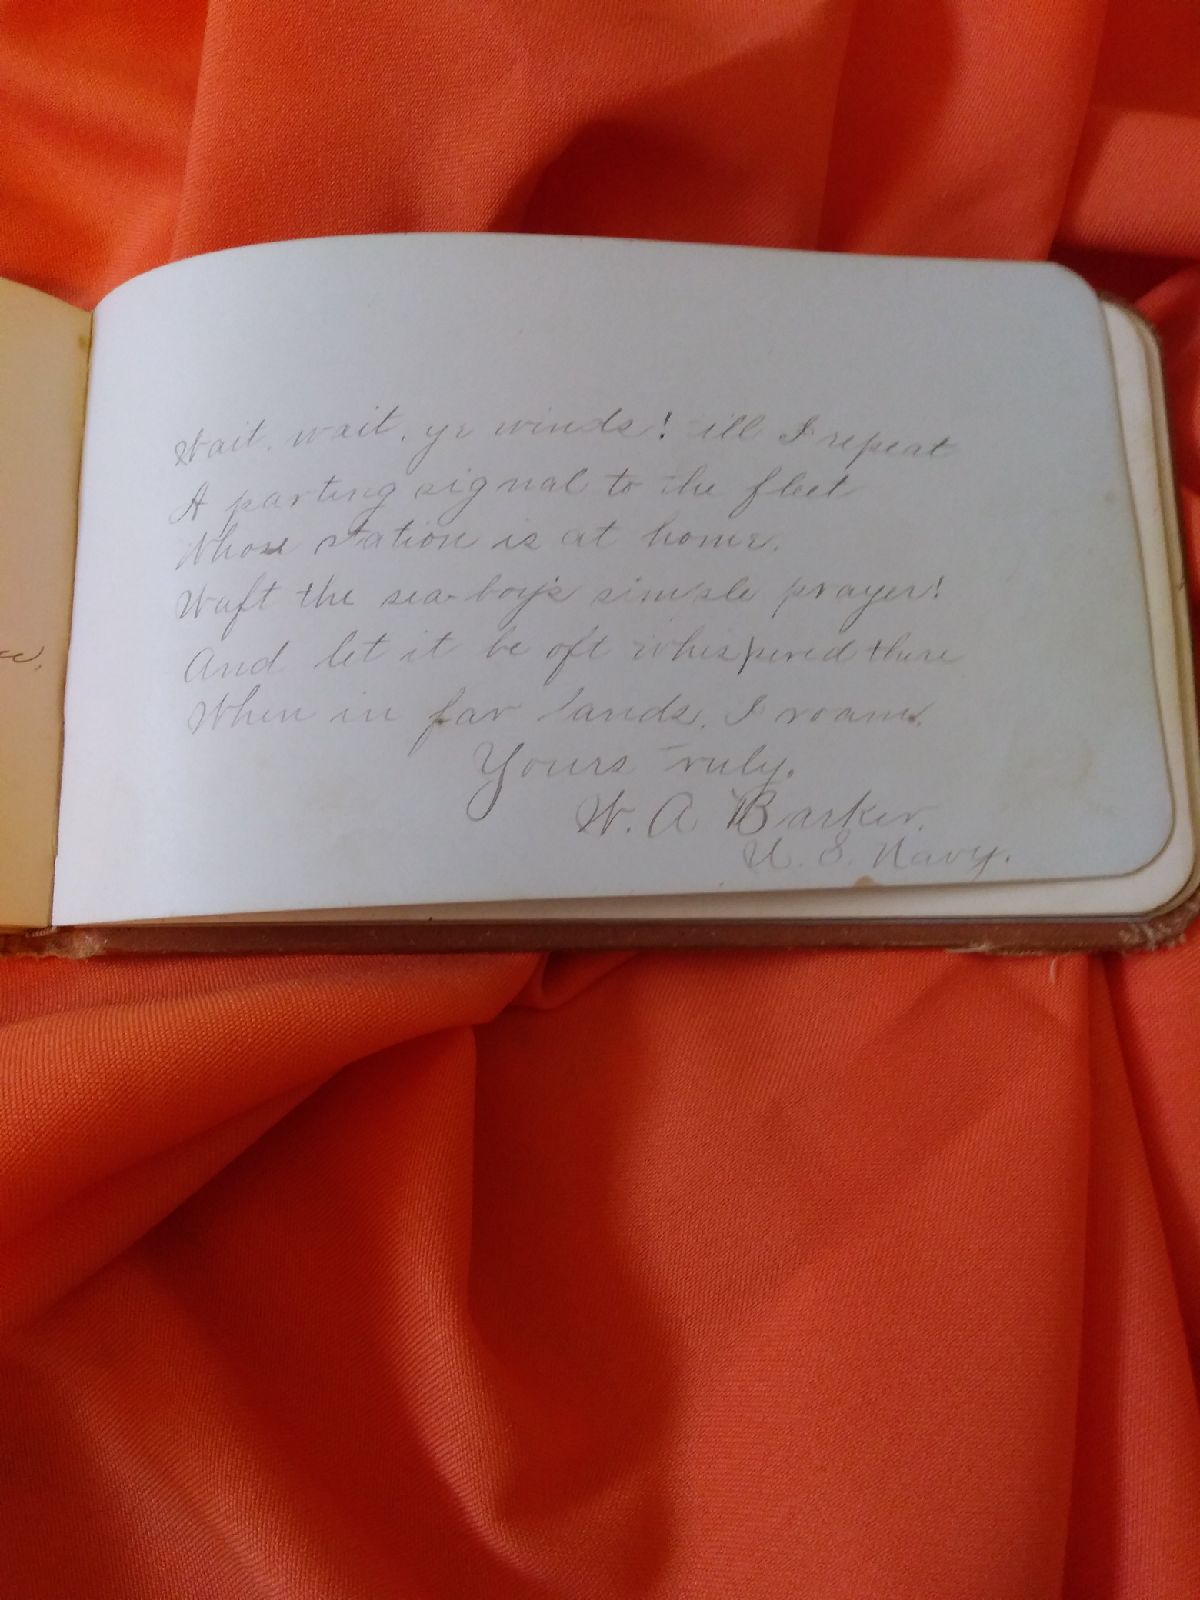 Wait, wait, ye winds! till I repeat
A parting signal to the fleet
Whose station is at home.
Waft the sea-boy's simple prayer!
And let it be oft whispered there
When in far lands, I roam.
Yours truly.
W. A Barker.
U. S. Navy.